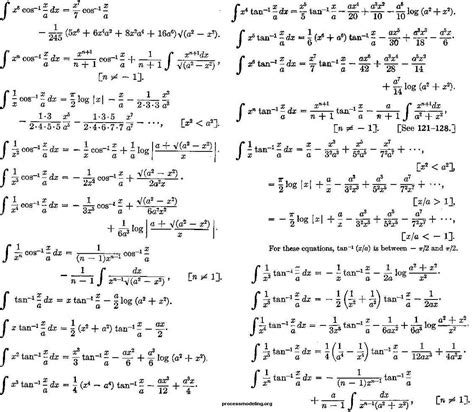 ∫ x⁶ cos⁻¹ x/a dx = x⁷/7 cos⁻¹ x/a
− 1/245 (5x⁶ + 6x⁴a² + 8x²a⁴ + 16a⁶)√(a² − x²).
∫ xⁿ cos⁻¹ x/a dx = xⁿ⁺¹/(n + 1) cos⁻¹ x/a + 1/(n + 1) ∫ xⁿ⁺¹dx/√(a² − x²),
[n ≠ −1].
∫ 1/x cos⁻¹ x/a dx = π/2 log |x| − x/a − 1/(2·3·3) x³/a³
− 1·3/(2·4·5·5) x⁵/a⁵ − 1·3·5/(2·4·6·7·7) x⁷/a⁷ − ···, [x² < a²].
∫ 1/x² cos⁻¹ x/a dx = − 1/x cos⁻¹ x/a + 1/a log |(a + √(a² − x²))/x|.
∫ 1/x³ cos⁻¹ x/a dx = − 1/2x² cos⁻¹ x/a + √(a² − x²)/2a²x.
∫ 1/x⁴ cos⁻¹ x/a dx = − 1/3x³ cos⁻¹ x/a + √(a² − x²)/6a²x²
+ 1/6a³ log |(a + √(a² − x²))/x|.
∫ 1/xⁿ cos⁻¹ x/a dx = − 1/((n − 1)xⁿ⁻¹) cos⁻¹ x/a
− 1/(n − 1) ∫ dx/(xⁿ⁻¹√(a² − x²)), [n ≠ 1].
∫ tan⁻¹ x/a dx = x tan⁻¹ x/a − a/2 log (a² + x²).
∫ x tan⁻¹ x/a dx = 1/2 (x² + a²) tan⁻¹ x/a − ax/2.
∫ x² tan⁻¹ x/a dx = x³/3 tan⁻¹ x/a − ax²/6 + a³/6 log (a² + x²).
∫ x³ tan⁻¹ x/a dx = 1/4 (x⁴ − a⁴) tan⁻¹ x/a − ax³/12 + a³x/4.
∫ x⁴ tan⁻¹ x/a dx = x⁵/5 tan⁻¹ x/a − ax⁴/20 + a³x²/10 − a⁵/10 log (a² + x²).
∫ x⁵ tan⁻¹ x/a dx = 1/6 (x⁶ + a⁶) tan⁻¹ x/a − ax⁵/30 + a³x³/18 − a⁵x/6.
∫ x⁶ tan⁻¹ x/a dx = x⁷/7 tan⁻¹ x/a − ax⁶/42 + a³x⁴/28 − a⁵x²/14
+ a⁷/14 log (a² + x²).
∫ xⁿ tan⁻¹ x/a dx = xⁿ⁺¹/(n + 1) tan⁻¹ x/a − a/(n + 1) ∫ xⁿ⁺¹dx/(a² + x²),
[n ≠ −1]. [See 121–128.]
∫ 1/x tan⁻¹ x/a dx = x/a − x³/3²a³ + x⁵/5²a⁵ − x⁷/7²a⁷ + ···,
[x² < a²],
= π/2 log |x| + a/x − a³/3²x³ + a⁵/5²x⁵ − a⁷/7²x⁷ + ···,
[x/a > 1],
= − π/2 log |x| + a/x − a³/3²x³ + a⁵/5²x⁵ − a⁷/7²x⁷ + ···,
[x/a < −1].
For these equations, tan⁻¹ (x/a) is between − π/2 and π/2.
∫ 1/x² tan⁻¹ x/a dx = − 1/x tan⁻¹ x/a − 1/2a log (a² + x²)/x².
∫ 1/x³ tan⁻¹ x/a dx = − 1/2 (1/x² + 1/a²) tan⁻¹ x/a − 1/2ax.
∫ 1/x⁴ tan⁻¹ x/a dx = − 1/3x³ tan⁻¹ x/a − 1/6ax² + 1/6a³ log (a² + x²)/x².
∫ 1/x⁵ tan⁻¹ x/a dx = 1/4 (1/a⁴ − 1/x⁴) tan⁻¹ x/a − 1/12ax³ + 1/4a³x.
∫ 1/xⁿ tan⁻¹ x/a dx = − 1/((n − 1)xⁿ⁻¹) tan⁻¹ x/a
+ a/(n − 1) ∫ dx/(xⁿ⁻¹(a² + x²)), [n ≠ 1].
processmodeling.org